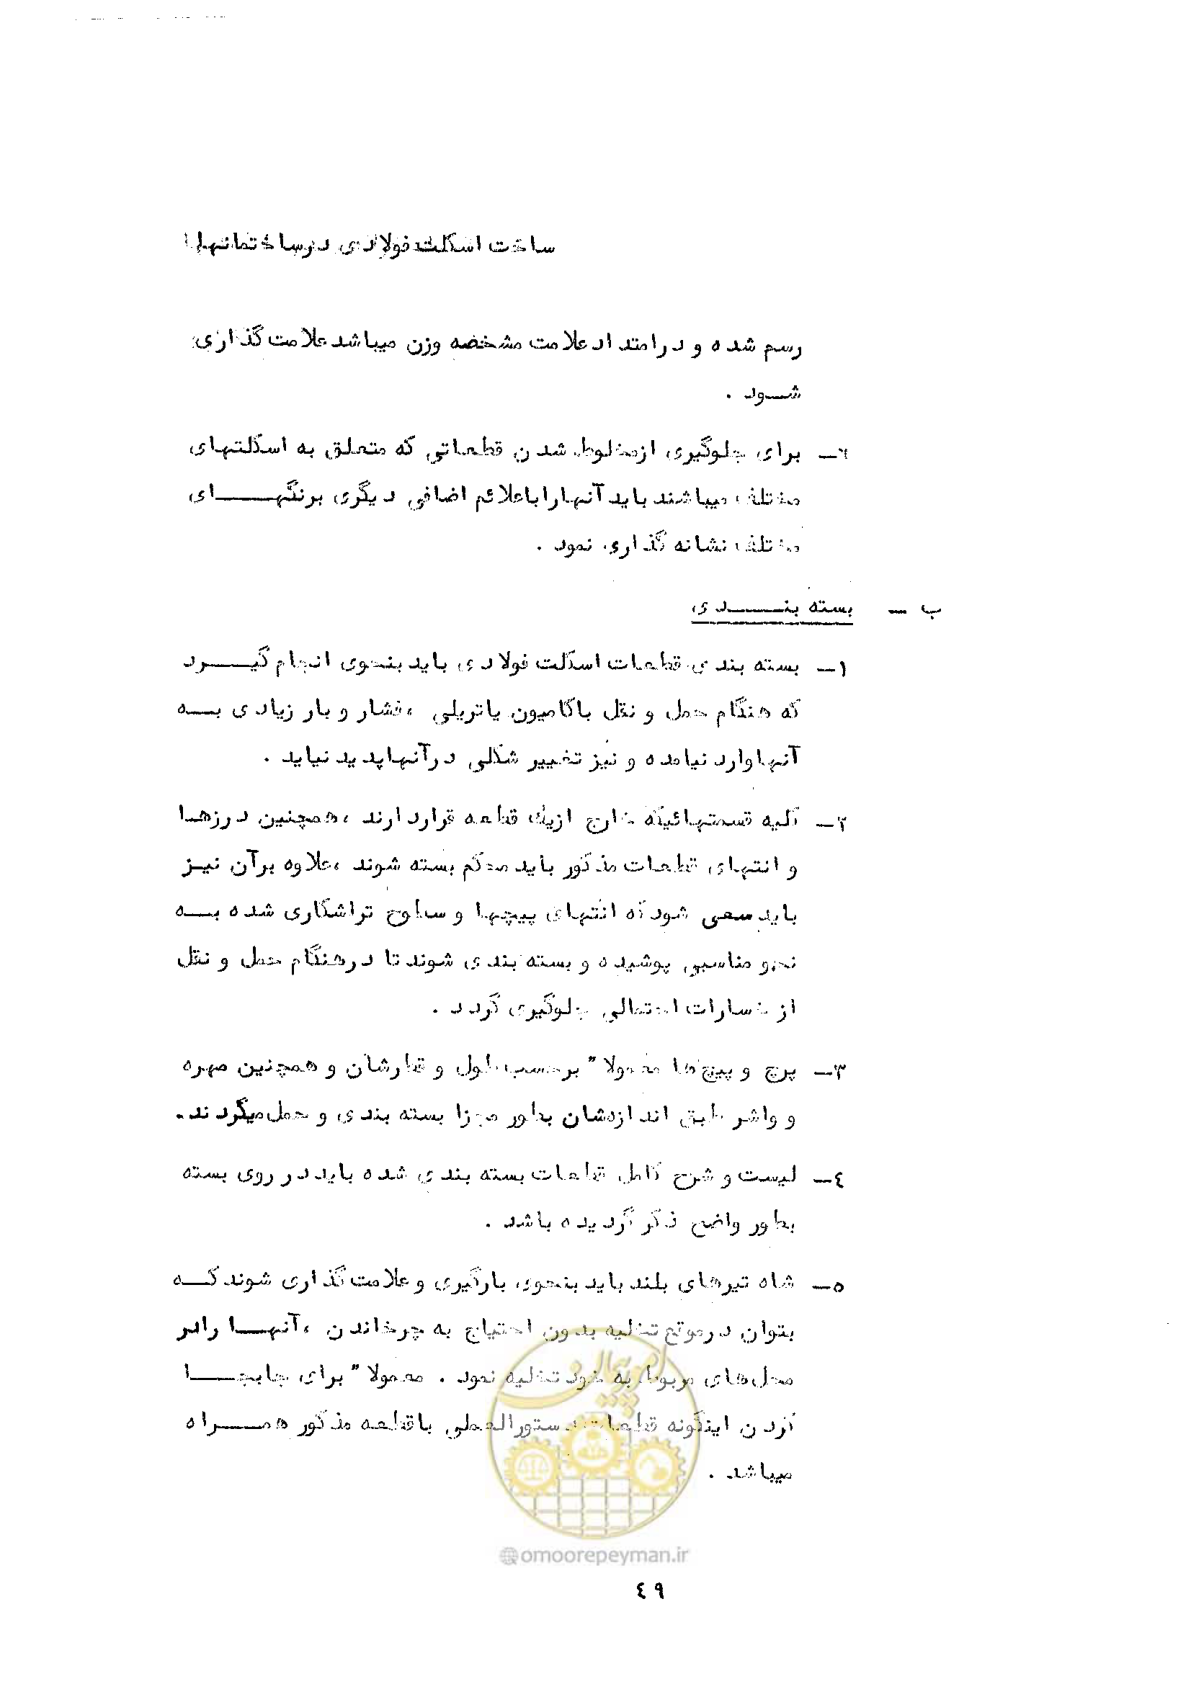 ساخت اسکلت فولادی درساختمانها
رسم شده و درامتداد علامت مشخصه وزن میباشد علامت گذاری
شود .
۶ـ برای جلوگیری ازمخلوط شدن قطعاتی که متعلق به اسکلتهای
مختلف میباشند باید آنهارا با علائم اضافی دیگری برنگهای
مختلف نشانه گذاری نمود .
ب ـ بسته بندی
۱ـ بسته بندی قطعات اسکلت فولادی باید بنحوی انجام گیرد
که هنگام حمل و نقل باکامیون یاتریلی ، فشار و بار زیادی به
آنها وارد نیامده و نیز تغییر شکلی درآنها پدید نیاید .
۲ـ کلیه قسمتهائیکه خارج ازیک قطعه قراردارند ، همچنین درزها
و انتهای قطعات مذکور باید محکم بسته شوند ، علاوه برآن نیز
باید سعی شود که انتهای پیچها و سطوح تراشکاری شده به
نحو مناسبی پوشیده و بسته بندی شوند تا درهنگام حمل و نقل
از خسارات احتمالی جلوگیری گردد .
۳ـ پرچ و پیچ‌ها معمولا" برحسب طول و قطرشان و همچنین مهره
و واشر طبق اندازه‌شان بطور مجزا بسته بندی و حمل میگردند.
٤ـ لیست و شرح کامل قطعات بسته بندی شده باید در روی بسته
بطور واضح ذکر گردیده باشد .
۵ـ شاه تیرهای بلند باید بنحوی بارگیری و علامت گذاری شوند که
بتوان درموقع تخلیه بدون احتیاج به چرخاندن ، آنها را در
محل‌های مربوط به خود تخلیه نمود . معمولا" برای جابجا
کردن اینگونه قطعات دستورالعملی باقطعه مذکور همراه
میباشد .
امور پیمان
@omoorepeyman.ir
٤٩